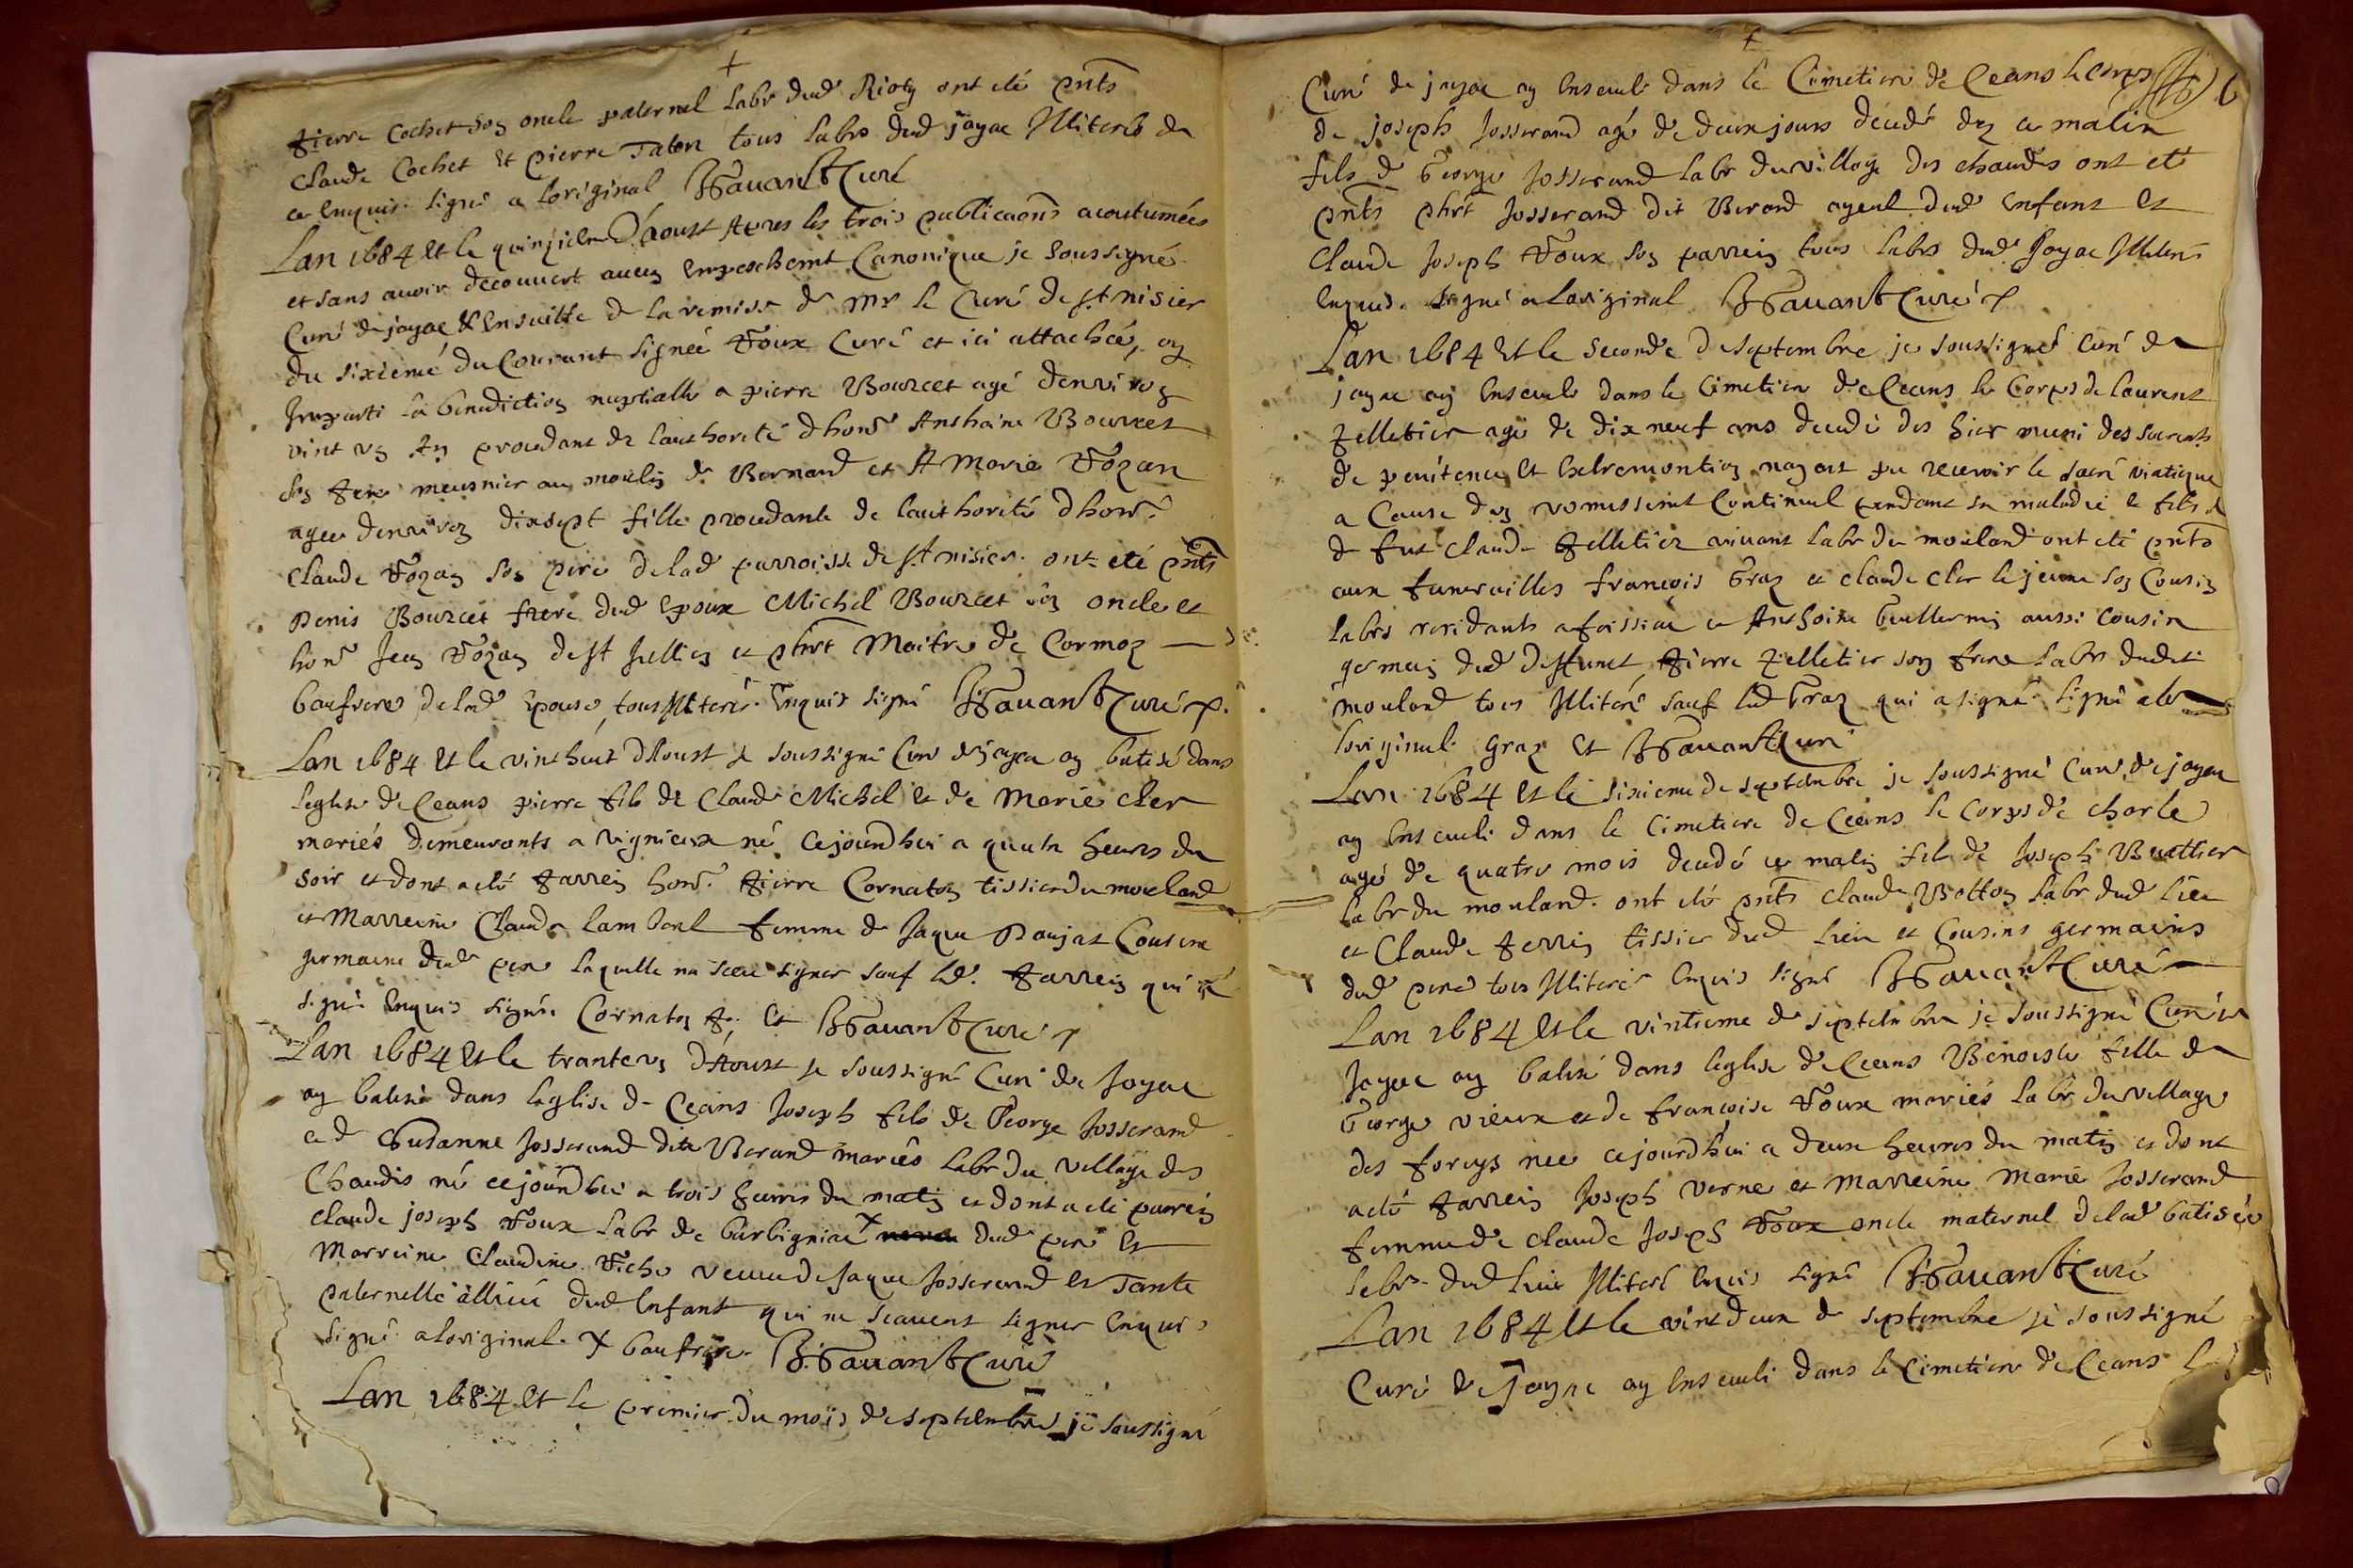 +
pierre Cochet son oncle paternel labr dud Rioty ont eté pnts
claude Cochet et pierre Taton tous labrs dud jayac Illiterés de
ce enquis signé a loriginal Favant Curé
Lan 1684 et le quinzieme Daoust Apres les trois publicaons acoutumées
et sans avoir decouvert aucun Empeschemt Canonique je soussigné
Curé de jayac & Ensuitte de la remisse de Mr le Curé de st nisier
du sixiemé du Courant signée Foux Curé et ici attachée, ay
Imparti la benediction nuptialle a pierre Bourcet agé denviron
vint un An procedant de lauthorité dhonn Anthoine Bourcet
son pere meusnier au moulin de Bernard et A Marie Fozan
agee denviron dixsept fille procedante de lauthorité dhonn.
Claude Fozan son pere delad parroisse de st nisier. ont eté pnts
Denis Bourcet frere dud Epoux Michel Bourcet son oncle et
honn Jean Fozan de st jullien et phrt Maitre de Cormoz
baufrere delad Epouse, tous Illiterés. Enquis signé Favant Curé
Lan 1684 et le vinthuit DAoust je soussigné Curé de jayac ay batisé dans
leglise de Ceans pierre fils de Claude Michel et de Marie cler
mariés demeurants a vignieux né cejourdhui a quatre heures du
soir et dont a eté parrein honn. pierre Cornaton tissier du mouland
et Marreine Clauda lambert femme de Jaque Poujat Cousine
germaine dud pere laquelle na sceu signer sauf led. parrein qui a
signé enquis signés Cornaton p: et Favant Curé
Lan 1684 et le trante un dAoust je soussigné Curé de Jayac
ay batisé dans leglise de Ceans Joseph fils de George Josserand
et de Susanne Josserand dite Berand mariés labr du village des
Chaudis né cejourdhui a trois heures du matin et dont a eté parrein
claude joseph Foux labr de barbigniat x neveu dud pere et
Marreine Claudine Fiche veuve de Jaque Josserand et Tante
paternelle alliée dud Enfant qui ne scavent signer Enquis
signé a loriginal. x baufrere. Favant Curé
Lan 1684 et le premier du mois de septembre je soussigné
+
Curé de jayac ay Enseveli dans le Cimetiere de Ceans le corps
6
de joseph Josserand agé de deux jours decedé des ce matin
fils de George Josserand labr du village des chaudes ont eté
pnts phrt Josserand dit Berand ayeul dud Enfant et
Claude Joseph Foux son parrein tous labrs dud Jayac Illiterés
Enquis. signé a loriginal Favant Curé
Lan 1684 et le second de septembre je soussigné Curé de
jayac ay Enseveli dans le Cimetiere de Ceans le Corps de laurent
pelletier agé de dix neuf ans decedé des hier muni des sacremts
de penitence et Extremontion nayant pu recevoir le sacré viatique
a Cause dun vomissemt Continuel pendant sa maladie et fils
de fut Claude pelletier vivant labr du mouland ont eté pnts
aux funerailles francois Graz et claude cler le jeune son Cousin
labrs residants a foissiat et Anthoine Guillermin aussi Cousin
germain dud deffunct, pierre pelletier son frere labr dudit
mouland tous Illiterés sauf led Graz qui a signé. signé a
loriginal. Graz et Favant Curé
Lan 1684 et le sixieme de septembre je soussigné Curé de jayac
ay Enseveli dans le Cimetiere de Ceans le Corps de charle
agé de quatre mois decedé ce matin fils de Joseph Buettier
labr du mouland. ont eté pnts claude Botton labr dud lieu
et Claude perrin tissier dud lieu et Cousins germains
dud pere tous Illiterés Enquis signé Favant Curé
Lan 1684 et le vintieme de septembre je soussigné Curé de
Jayac ay batisé dans leglise de Ceans Benoiste fille de
George vieux et de francoise Foux mariés labr du village
des foreys nee cejourdhui a deux heures du matin et dont
a eté parrein Joseph verne et Marreine Marie Josserand
femme de claude Joseph Foux oncle maternel delad batisée
labrs. dud lieu Illiterés Enquis signé Favant Curé
Lan 1684 et le vint deux de septembre je soussigné
Curé de Jayac ay Enseveli dans le Cimetiere de Ceans